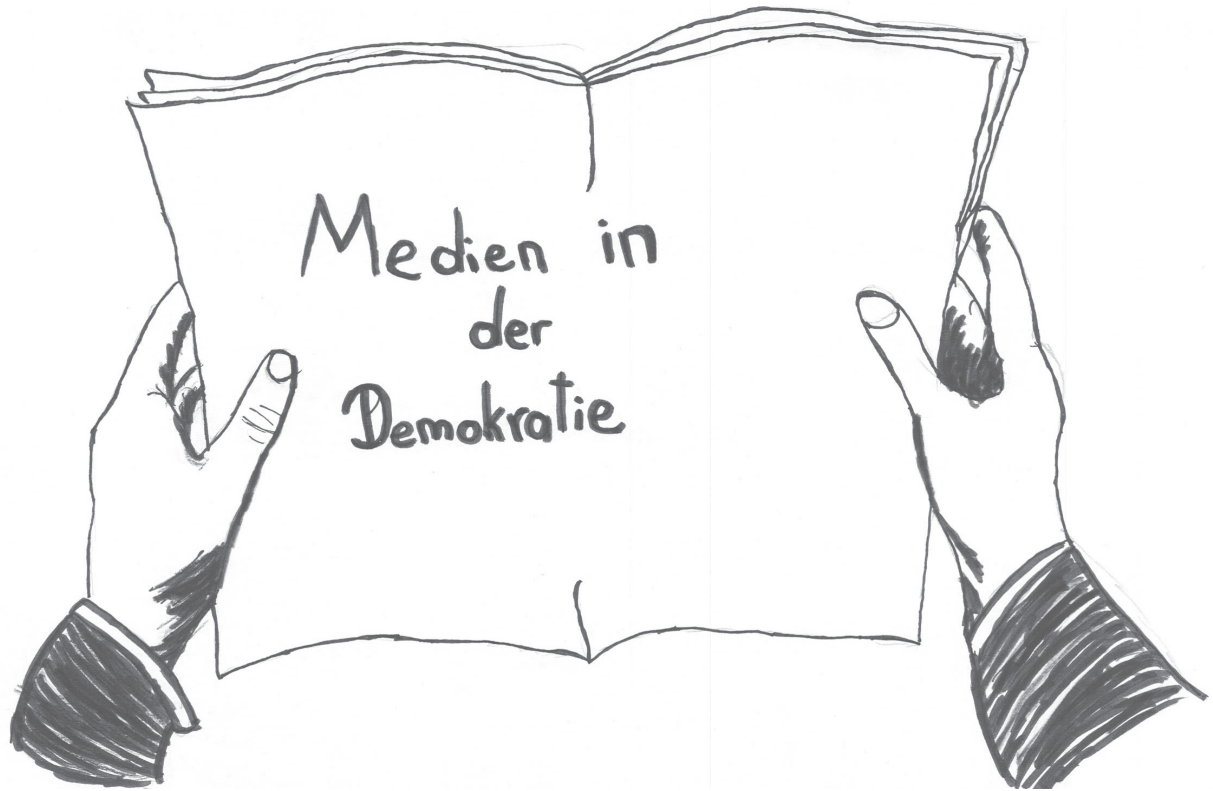 Medien in
der
Demokratie